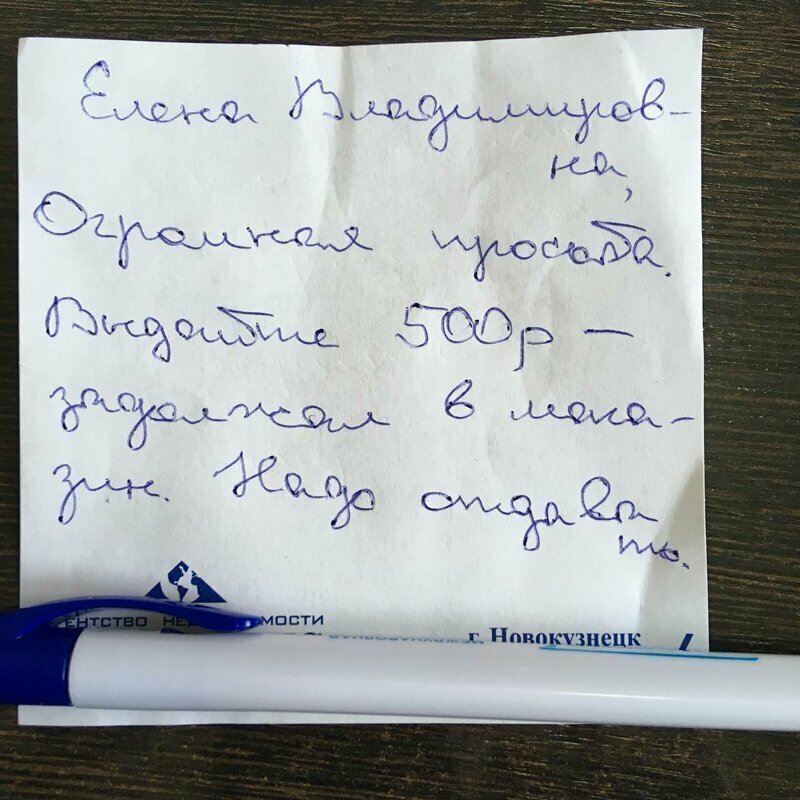 Елена Владимиров-
на,
Огромная просьба.
Выдайте 500р –
задолжал в мага-
зин. Надо отдава
ть.
ЕНТСТВО НЕД ИМОСТИ
г. Новокузнецк